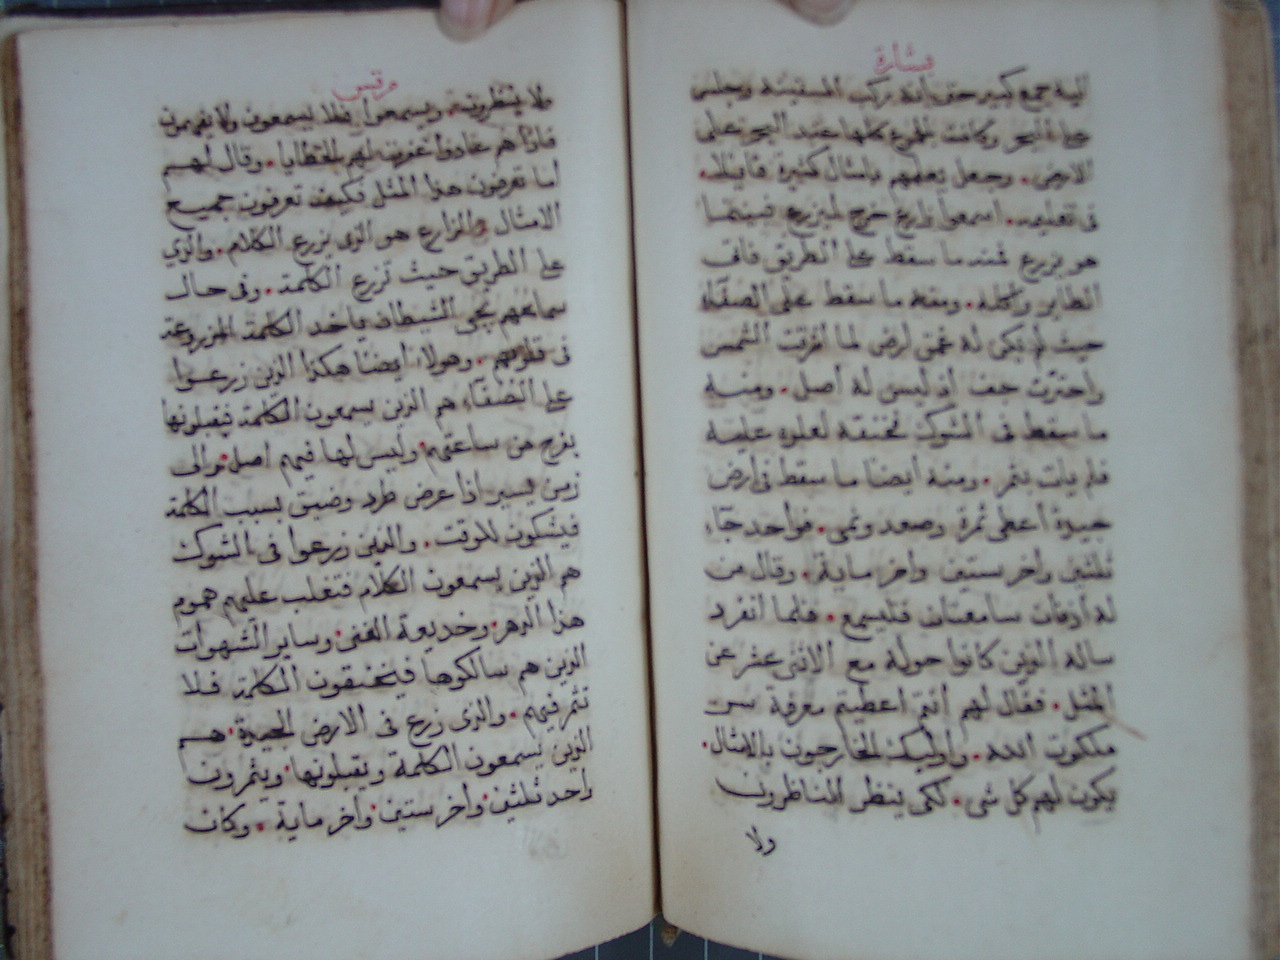 بشارة
اليه جمع كبير حتى انه ركب السفينة وجلس
على البحر وكانت الجموع كلها عند البحر على
الارض. وجعل يعلمهم بامثال كثيرة قايلا.
فى تعليمه. اسمعوا زارع خرج ليزرع فبينما
هو يزرع فمنه ما سقط على الطريق فاتى
الطاير واكله. ومنه ما سقط على الصفاة
حيث لم يكن له عمق ارض لما اشرقت الشمس
واحترقت جفت اذ ليس له اصل. ومنه
ما سقط فى الشوك فخنقه لعلوه عليه
فلم يات بثمر. ومنه ايضا ما سقط فى ارض
جيدة اعطى ثمرة وصعد ونمى. فواحد جاء
ثلثين واخر ستين واخر ماية. وقال من
له اذنان سامعتان فليسمع. فلما انفرد
ساله الذين كانوا حوله مع الاثنى عشر عن
المثل. فقال لهم انتم اعطيتم معرفة سر
ملكوت الله. واوليك الخارجون بالامثال.
يكون لهم كل شى. لكى ينظر الناظرون
ولا
مرقس
ولا ينظرون. ويسمعوا فلا يسمعون ولا يفهمون
فاذا هم عادوا غفرت لهم الخطايا. وقال لهم
اما تعرفون هذا المثل فكيف تعرفون جميع
الامثال والزارع هو الذى يزرع الكلام. والذي
على الطريق حيث تزرع الكلمة. وفى حال
سماعهم يجى الشيطان ياخد الكلمة المزروعة
فى قلوبهم. وهولاء ايضا هكذا الذين زرعوا
على الصفاء هم الذين يسمعون الكلمة فيقبلونها
بفرح من ساعتهم وليس لها فيهم اصل والى
زمن يسير اذا عرض طرد وضيق بسبب الكلمة
فيشكون للوقت. والذين زرعوا فى الشوك
هم الذين يسمعون الكلام فتغلب عليهم هموم
هذا الدهر وخديعة الغنى وساير الشهوات
الذين هم سالكوها فيخنقون الكلمة فلا
تثمر فيهم. والذى زرع فى الارض الجيدة هم
الذين يسمعون الكلمة ويقبلونها ويثمرون
واحد ثلثين واخر ستين واخر ماية. وكان